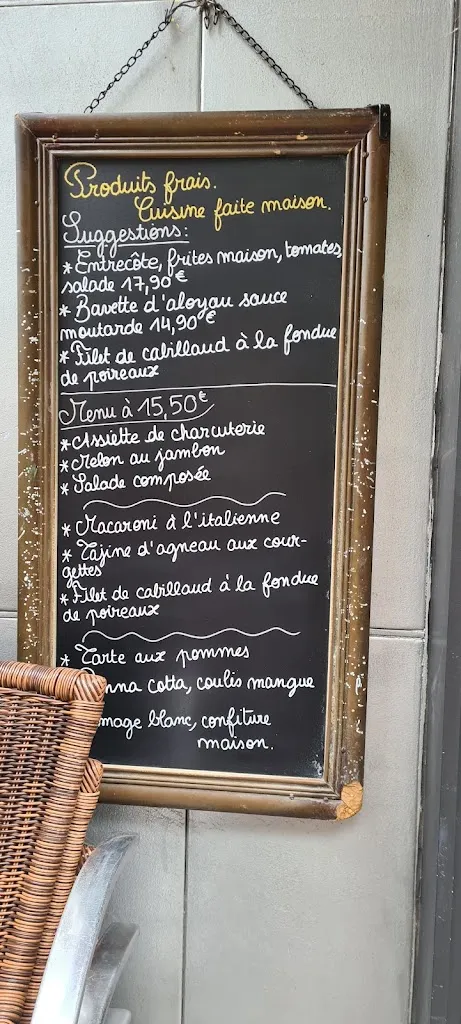 Produits frais.
Cuisine faite maison.
Suggestions:
* Entrecôte, frites maison, tomates,
salade 17,90€
* Bavette d'aloyau sauce
moutarde 14,90€
* Filet de cabillaud à la fondue
de poireaux
Menu à 15,50€
* Assiette de charcuterie
* Melon au jambon
* Salade composée
* Macaroni à l'italienne
* Tajine d'agneau aux cour-
gettes
* Filet de cabillaud à la fondue
de poireaux
* Tarte aux pommes
nna cotta, coulis mangue
mage blanc, confiture
maison.